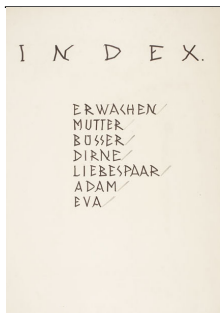 INDEX.
ERWACHEN
MUTTER
BÜSSER
DIRNE
LIEBESPAAR
ADAM
EVA